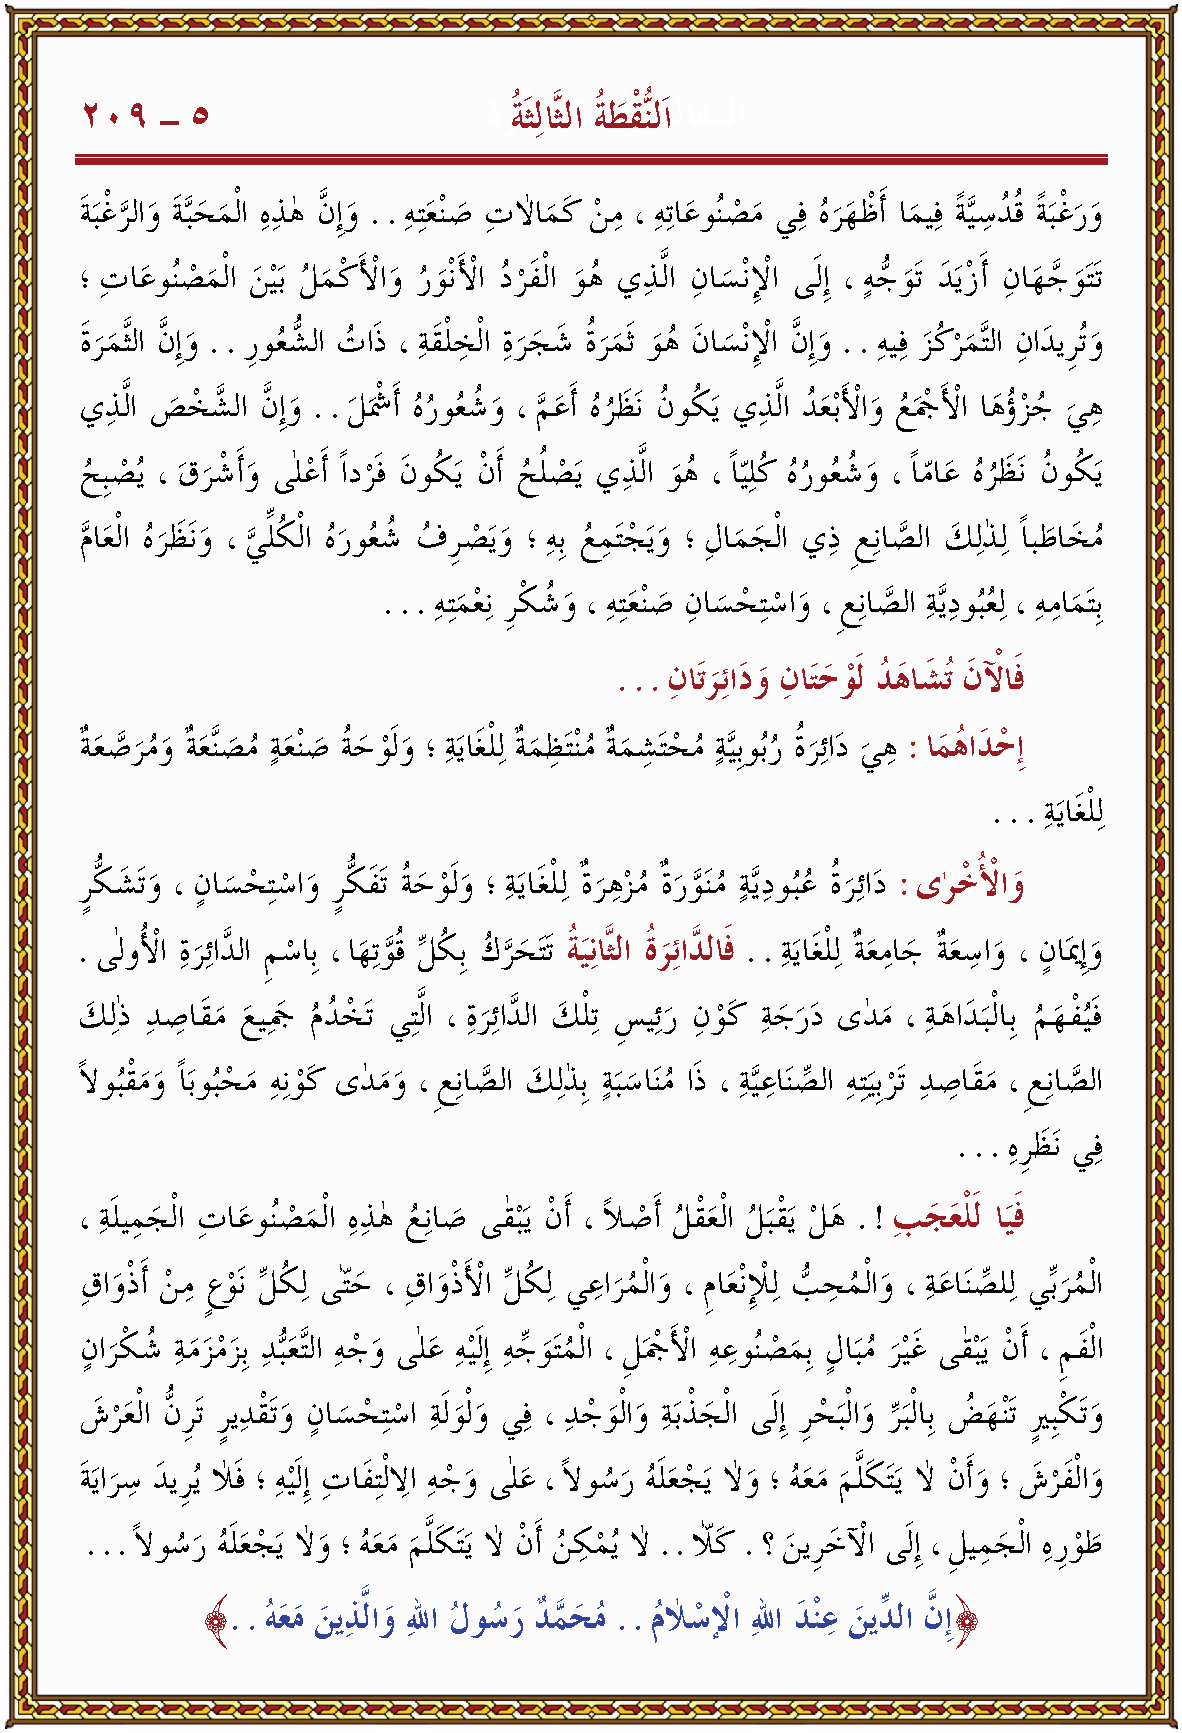 اَلنُّقْطَةُ الثَّالِثَةُ ٢٠٩ – ٥
وَرَغْبَةً قُدُسِيَّةً فِيمَا أَظْهَرَهُ فِي مَصْنُوعَاتِهِ ، مِنْ كَمَالاٰتِ صَنْعَتِهِ . . وَإِنَّ هٰذِهِ الْمَحَبَّةَ وَالرَّغْبَةَ
تَتَوَجَّهَانِ أَزْيَدَ تَوَجُّهٍ ، إِلَى الْإِنْسَانِ الَّذِي هُوَ الْفَرْدُ الْأَنْوَرُ وَالْأَكْمَلُ بَيْنَ الْمَصْنُوعَاتِ ؛
وَتُرِيدَانِ التَّمَرْكُزَ فِيهِ . . وَإِنَّ الْإِنْسَانَ هُوَ ثَمَرَةُ شَجَرَةِ الْخِلْقَةِ ، ذَاتُ الشُّعُورِ . . وَإِنَّ الثَّمَرَةَ
هِيَ جُزْؤُهَا الْأَجْمَعُ وَالْأَبْعَدُ الَّذِي يَكُونُ نَظَرُهُ أَعَمَّ ، وَشُعُورُهُ أَشْمَلَ . . وَإِنَّ الشَّخْصَ الَّذِي
يَكُونُ نَظَرُهُ عَامّاً ، وَشُعُورُهُ كُلِّيّاً ، هُوَ الَّذِي يَصْلُحُ أَنْ يَكُونَ فَرْداً أَعْلٰى وَأَشْرَقَ ، يُصْبِحُ
مُخَاطَباً لِذٰلِكَ الصَّانِعِ ذِي الْجَمَالِ ؛ وَيَجْتَمِعُ بِهِ ؛ وَيَصْرِفُ شُعُورَهُ الْكُلِّيَّ ، وَنَظَرَهُ الْعَامَّ
بِتَمَامِهِ ، لِعُبُودِيَّةِ الصَّانِعِ ، وَاسْتِحْسَانِ صَنْعَتِهِ ، وَشُكْرِ نِعْمَتِهِ . . .
فَالْاٰنَ تُشَاهَدُ لَوْحَتَانِ وَدَائِرَتَانِ . . .
إِحْدَاهُمَا : هِيَ دَائِرَةُ رُبُوبِيَّةٍ مُحْتَشِمَةٌ مُنْتَظِمَةٌ لِلْغَايَةِ ؛ وَلَوْحَةُ صَنْعَةٍ مُصَنَّعَةٌ وَمُرَصَّعَةٌ
لِلْغَايَةِ . . .
وَالْأُخْرٰى : دَائِرَةُ عُبُودِيَّةٍ مُنَوَّرَةٌ مُزْهِرَةٌ لِلْغَايَةِ ؛ وَلَوْحَةُ تَفَكُّرٍ وَاسْتِحْسَانٍ ، وَتَشَكُّرٍ
وَإِيمَانٍ ، وَاسِعَةٌ جَامِعَةٌ لِلْغَايَةِ . . فَالدَّائِرَةُ الثَّانِيَةُ تَتَحَرَّكُ بِكُلِّ قُوَّتِهَا ، بِاسْمِ الدَّائِرَةِ الْأُولٰى .
فَيُفْهَمُ بِالْبَدَاهَةِ ، مَدٰى دَرَجَةِ كَوْنِ رَئِيسِ تِلْكَ الدَّائِرَةِ ، الَّتِي تَخْدُمُ جَمِيعَ مَقَاصِدِ ذٰلِكَ
الصَّانِعِ ، مَقَاصِدِ تَرْبِيَتِهِ الصِّنَاعِيَّةِ ، ذَا مُنَاسَبَةٍ بِذٰلِكَ الصَّانِعِ ، وَمَدٰى كَوْنِهِ مَحْبُوباً وَمَقْبُولاً
فِي نَظَرِهِ . . .
فَيَا لَلْعَجَبِ ! . هَلْ يَقْبَلُ الْعَقْلُ أَصْلاً ، أَنْ يَبْقٰى صَانِعُ هٰذِهِ الْمَصْنُوعَاتِ الْجَمِيلَةِ ،
الْمُرَبِّي لِلصِّنَاعَةِ ، وَالْمُحِبُّ لِلْإِنْعَامِ ، وَالْمُرَاعِي لِكُلِّ الْأَذْوَاقِ ، حَتّٰى لِكُلِّ نَوْعٍ مِنْ أَذْوَاقِ
الْفَمِ ، أَنْ يَبْقٰى غَيْرَ مُبَالٍ بِمَصْنُوعِهِ الْأَجْمَلِ ، الْمُتَوَجِّهِ إِلَيْهِ عَلٰى وَجْهِ التَّعَبُّدِ بِزَمْزَمَةِ شُكْرَانٍ
وَتَكْبِيرٍ تَنْهَضُ بِالْبَرِّ وَالْبَحْرِ إِلَى الْجَذْبَةِ وَالْوَجْدِ ، فِي وَلْوَلَةِ اسْتِحْسَانٍ وَتَقْدِيرٍ تَرِنُّ الْعَرْشَ
وَالْفَرْشَ ؛ وَأَنْ لاٰ يَتَكَلَّمَ مَعَهُ ؛ وَلاٰ يَجْعَلَهُ رَسُولاً ، عَلٰى وَجْهِ الاِلْتِفَاتِ إِلَيْهِ ؛ فَلاٰ يُرِيدَ سِرَايَةَ
طَوْرِهِ الْجَمِيلِ ، إِلَى الْآخَرِينَ ؟ . كَلاّٰ . . لاٰ يُمْكِنُ أَنْ لاٰ يَتَكَلَّمَ مَعَهُ ؛ وَلاٰ يَجْعَلَهُ رَسُولاً . . .
﴿إِنَّ الدِّينَ عِنْدَ اللهِ الْإِسْلاٰمُ . . مُحَمَّدٌ رَسُولُ اللهِ وَالَّذِينَ مَعَهُ . .﴾